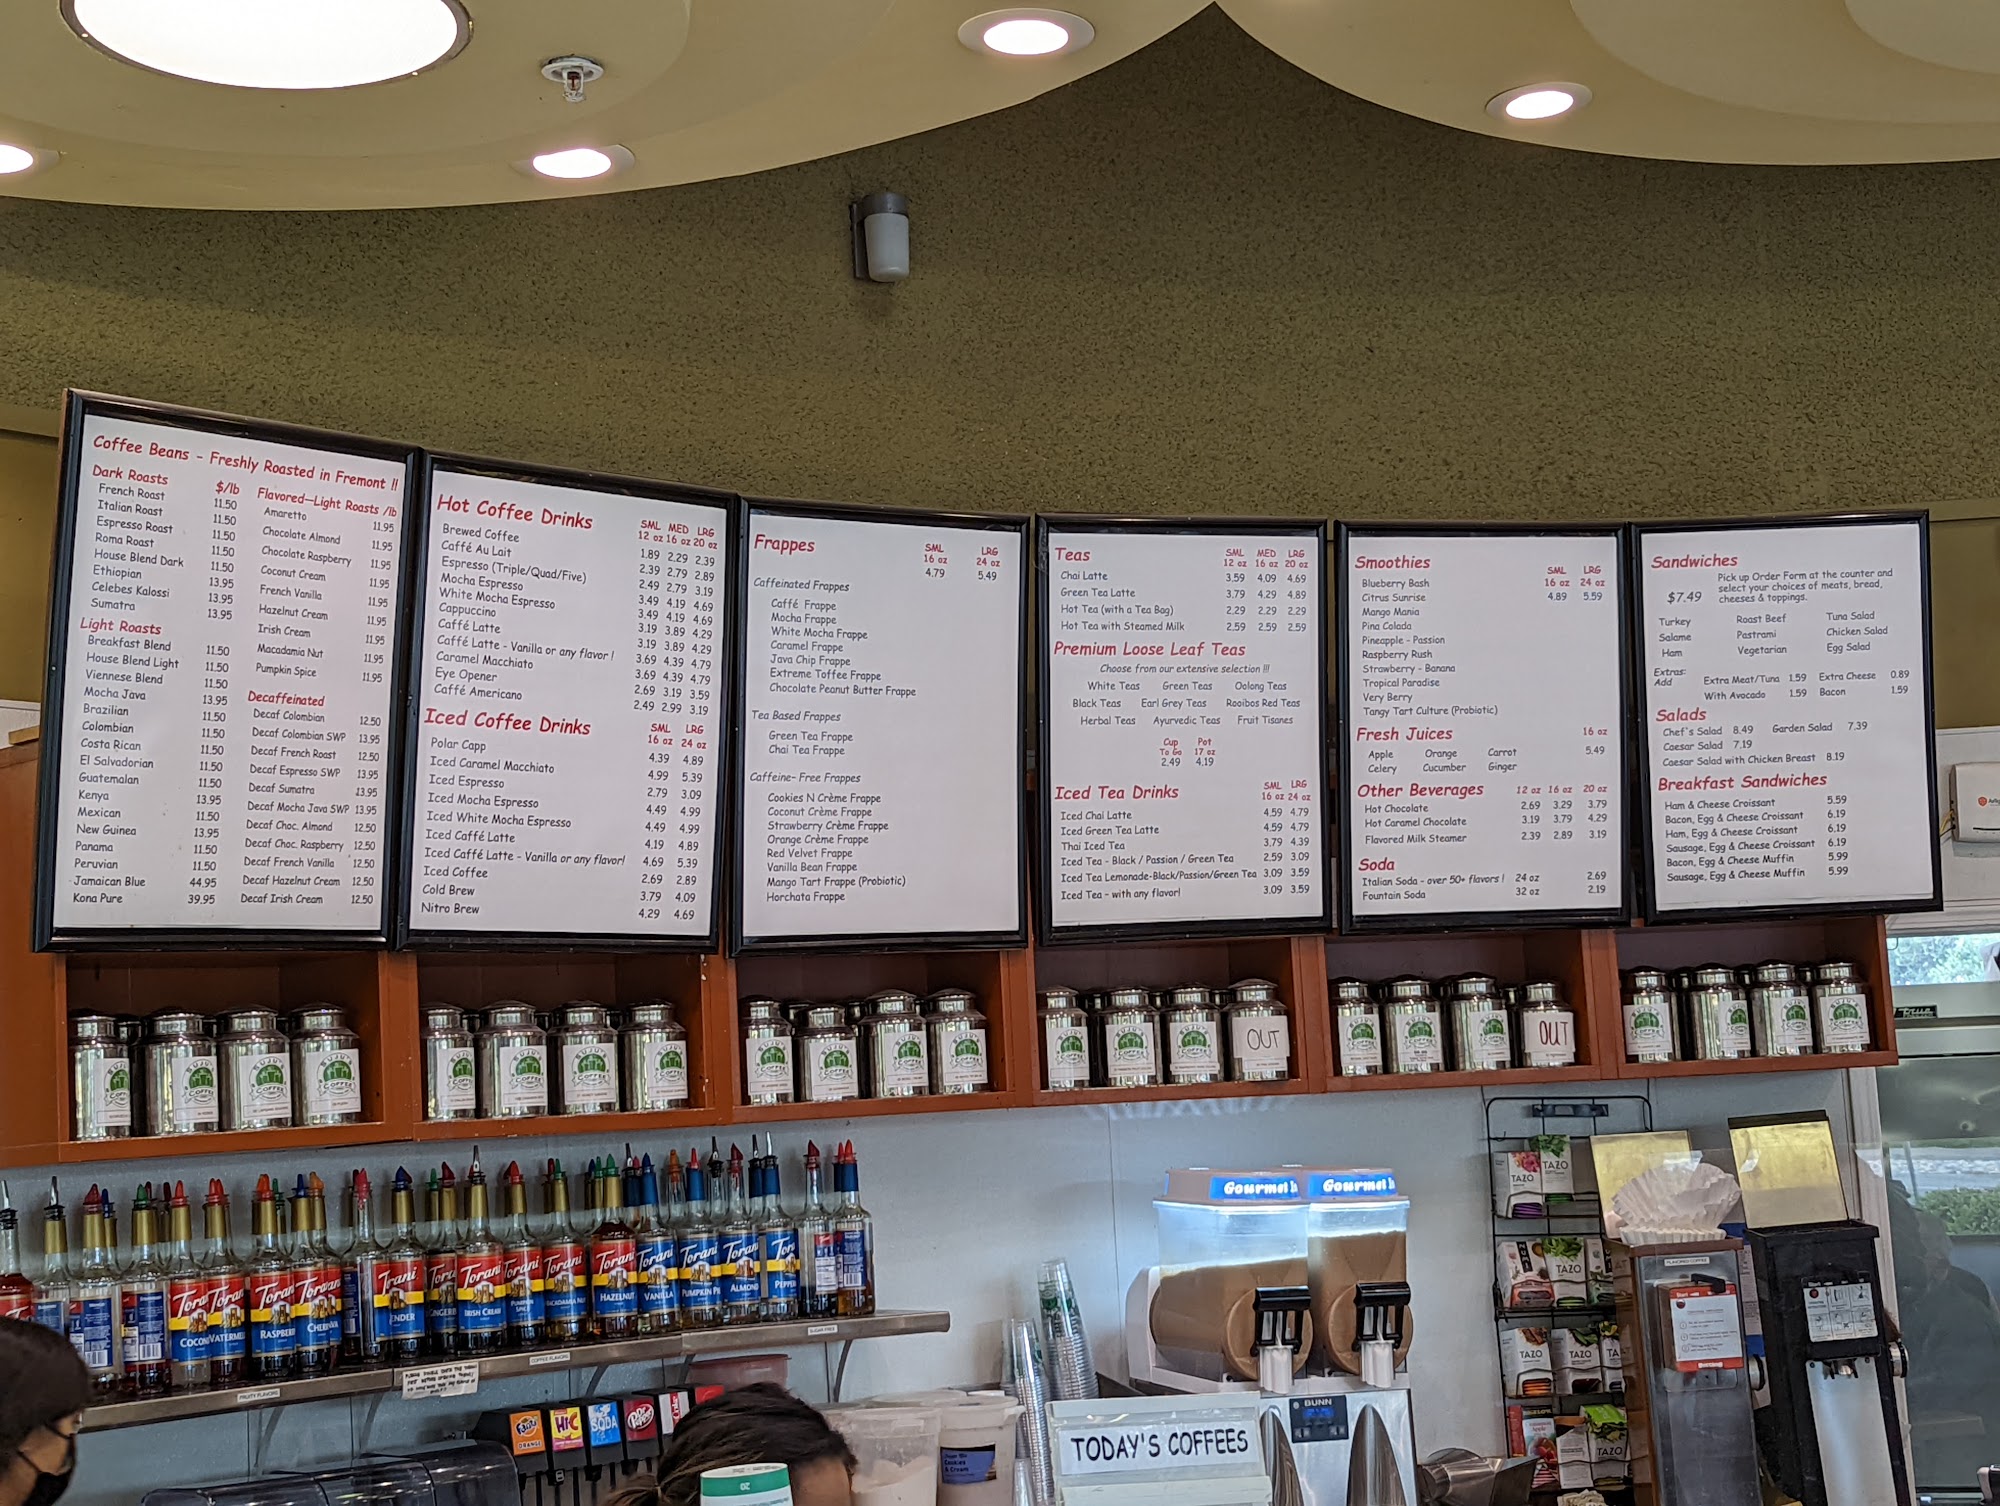 Coffee Beans - Freshly Roasted in Fremont !!
Dark Roasts $/lb
French Roast 11.50
Italian Roast 11.50
Espresso Roast 11.50
Roma Roast 11.50
House Blend Dark 11.50
Ethiopian 13.95
Celebes Kalossi 13.95
Sumatra 13.95
Light Roasts
Breakfast Blend 11.50
House Blend Light 11.50
Viennese Blend 11.50
Mocha Java 13.95
Brazilian 11.50
Colombian 11.50
Costa Rican 11.50
El Salvadorian 11.50
Guatemalan 11.50
Kenya 13.95
Mexican 11.50
New Guinea 13.95
Panama 11.50
Peruvian 11.50
Jamaican Blue 44.95
Kona Pure 39.95
Flavored—Light Roasts /lb
Amaretto 11.95
Chocolate Almond 11.95
Chocolate Raspberry 11.95
Coconut Cream 11.95
French Vanilla 11.95
Hazelnut Cream 11.95
Irish Cream 11.95
Macadamia Nut 11.95
Pumpkin Spice 11.95
Decaffeinated
Decaf Colombian 12.50
Decaf Colombian SWP 13.95
Decaf French Roast 12.50
Decaf Espresso SWP 13.95
Decaf Sumatra 13.95
Decaf Mocha Java SWP 13.95
Decaf Choc. Almond 12.50
Decaf Choc. Raspberry 12.50
Decaf French Vanilla 12.50
Decaf Hazelnut Cream 12.50
Decaf Irish Cream 12.50
Hot Coffee Drinks SML MED LRG
12 oz 16 oz 20 oz
Brewed Coffee 1.89 2.29 2.39
Caffé Au Lait 2.39 2.79 2.89
Espresso (Triple/Quad/Five) 2.49 2.79 3.19
Mocha Espresso 3.49 4.19 4.69
White Mocha Espresso 3.49 4.19 4.69
Cappuccino 3.19 3.89 4.29
Caffé Latte 3.19 3.89 4.29
Caffé Latte - Vanilla or any flavor ! 3.69 4.39 4.79
Caramel Macchiato 3.69 4.39 4.79
Eye Opener 2.69 3.19 3.59
Caffé Americano 2.49 2.99 3.19
Iced Coffee Drinks SML LRG
16 oz 24 oz
Polar Capp 4.39 4.89
Iced Caramel Macchiato 4.99 5.39
Iced Espresso 2.79 3.09
Iced Mocha Espresso 4.49 4.99
Iced White Mocha Espresso 4.49 4.99
Iced Caffé Latte 4.19 4.89
Iced Caffé Latte - Vanilla or any flavor! 4.69 5.39
Iced Coffee 2.69 2.89
Cold Brew 3.79 4.09
Nitro Brew 4.29 4.69
Frappes SML LRG
16 oz 24 oz
4.79 5.49
Caffeinated Frappes
Caffé Frappe
Mocha Frappe
White Mocha Frappe
Caramel Frappe
Java Chip Frappe
Extreme Toffee Frappe
Chocolate Peanut Butter Frappe
Tea Based Frappes
Green Tea Frappe
Chai Tea Frappe
Caffeine- Free Frappes
Cookies N Crème Frappe
Coconut Crème Frappe
Strawberry Crème Frappe
Orange Crème Frappe
Red Velvet Frappe
Vanilla Bean Frappe
Mango Tart Frappe (Probiotic)
Horchata Frappe
Teas SML MED LRG
12 oz 16 oz 20 oz
Chai Latte 3.59 4.09 4.69
Green Tea Latte 3.79 4.29 4.89
Hot Tea (with a Tea Bag) 2.29 2.29 2.29
Hot Tea with Steamed Milk 2.59 2.59 2.59
Premium Loose Leaf Teas
Choose from our extensive selection !!!
White Teas Green Teas Oolong Teas
Black Teas Earl Grey Teas Rooibos Red Teas
Herbal Teas Ayurvedic Teas Fruit Tisanes
Cup Pot
To Go 17 oz
2.49 4.19
Iced Tea Drinks SML LRG
16 oz 24 oz
Iced Chai Latte 4.59 4.79
Iced Green Tea Latte 4.59 4.79
Thai Iced Tea 3.79 4.39
Iced Tea - Black / Passion / Green Tea 2.59 3.09
Iced Tea Lemonade-Black/Passion/Green Tea 3.09 3.59
Iced Tea - with any flavor! 3.09 3.59
Smoothies SML LRG
16 oz 24 oz
4.89 5.59
Blueberry Bash
Citrus Sunrise
Mango Mania
Pina Colada
Pineapple - Passion
Raspberry Rush
Strawberry - Banana
Tropical Paradise
Very Berry
Tangy Tart Culture (Probiotic)
Fresh Juices 16 oz
Apple Orange Carrot 5.49
Celery Cucumber Ginger
Other Beverages 12 oz 16 oz 20 oz
Hot Chocolate 2.69 3.29 3.79
Hot Caramel Chocolate 3.19 3.79 4.29
Flavored Milk Steamer 2.39 2.89 3.19
Soda
Italian Soda - over 50+ flavors ! 24 oz 2.69
Fountain Soda 32 oz 2.19
Sandwiches
$7.49 Pick up Order Form at the counter and
select your choices of meats, bread,
cheeses & toppings.
Turkey Roast Beef Tuna Salad
Salame Pastrami Chicken Salad
Ham Vegetarian Egg Salad
Extras:
Add Extra Meat/Tuna 1.59 Extra Cheese 0.89
With Avocado 1.59 Bacon 1.59
Salads
Chef's Salad 8.49 Garden Salad 7.39
Caesar Salad 7.19
Caesar Salad with Chicken Breast 8.19
Breakfast Sandwiches
Ham & Cheese Croissant 5.59
Bacon, Egg & Cheese Croissant 6.19
Ham, Egg & Cheese Croissant 6.19
Sausage, Egg & Cheese Croissant 6.19
Bacon, Egg & Cheese Muffin 5.99
Sausage, Egg & Cheese Muffin 5.99
BUJU'S
COFFEE
OUT
OUT
True
Torani
IRISH CREAM
Torani
PUMPKIN SPICE
Torani
HAZELNUT
Torani
VANILLA
Torani
Torani
ALMOND
FRUITY FLAVORS
COFFEE FLAVORS
SUGAR FREE
Gourmet
Gourmet
BUNN
TAZO
TAZO
TAZO
TAZO
TAZO
TAZO
FLAVORED COFFEE
Fanta
ORANGE
HI-C
SODA
Dr Pepper
Cookies
& Cream
20
TODAY'S COFFEES